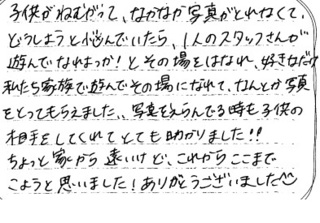 子供がねむがって、なかなか写真がとれなくて、
どうしようと悩んでいたら、1人のスタッフさんが
遊んでなれよっか!とその場をはなれ、好きなだけ
私たち家族で遊んでその場になれて、なんとか写真
をとってもらえました、写真をえらんでる時も子供の
相手をしてくれてとても助かりました!!
ちょっと家から遠いけど、これからここまで
こようと思いました!ありがとうございました